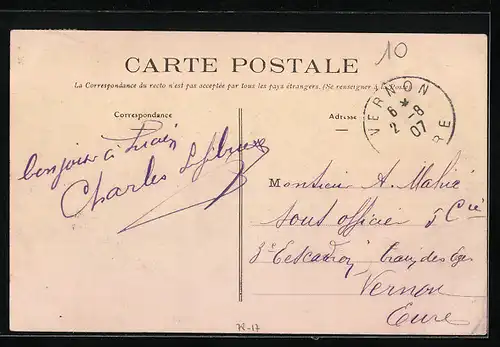 10
CARTE POSTALE
La Correspondance du recto n'est pas acceptée par tous les pays étrangers. (Se renseigner à la Poste
Correspondance
Adresse
VERNON
6 * 2 -8 07
RE
bonjour à Lucien
Charles Lefebvre
Monsieur A. Mahié
sous officier 5 Cie
3e Escadron train des Eq.
Vernon
Eure